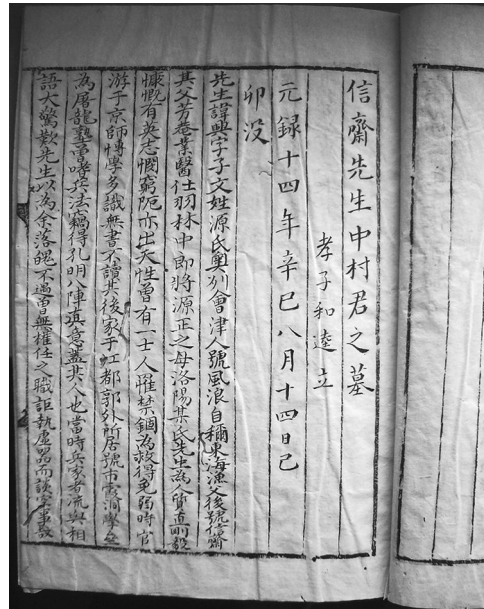 信齋先生中村君之墓
孝子和逵立
元録十四年辛巳八月十四日巳
卯没
先生諱興字子文姓源氏奥州會津人號風浪自稱東海漁父後號信齋
其父芳菴業醫仕羽林中郎將源正之母洛陽某氏先生為人質直剛毅
慷慨有英志憫窮阨亦出天性曾有一士人罹禁錮為救得免弱時官
游于京師博學多識無書不讀其後家于虹都郭外所居號市霞洞學
為屠龍塾嘗嗜兵法竊得孔明八陣真意蓋其人也當時兵家者流與相
語大驚歎先生以為余落魄不遇曽無權任之職詎執虚器而談事哉